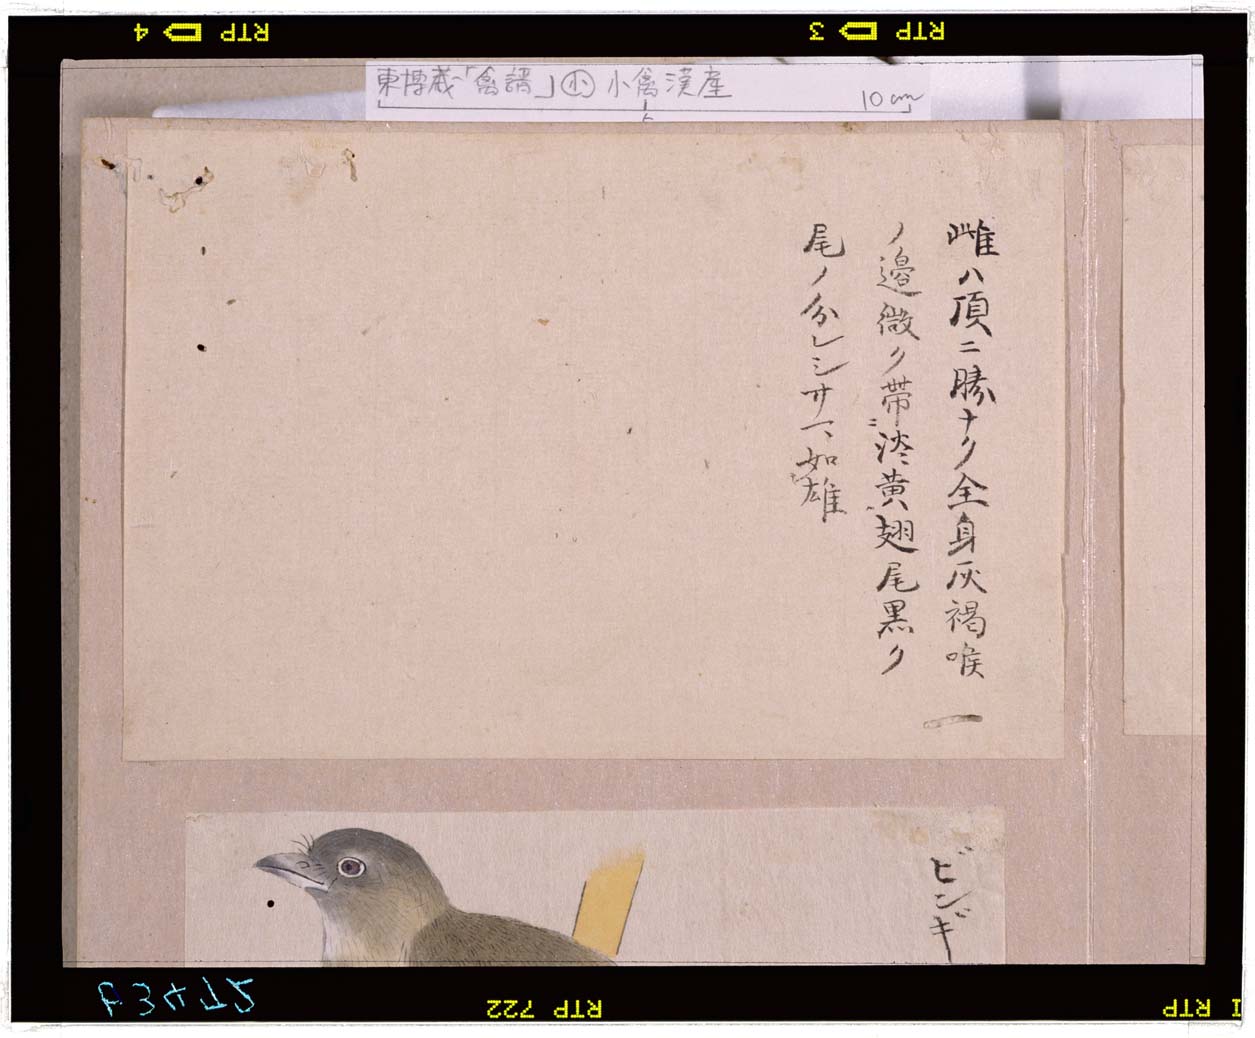 RTP 4
RTP 3
東博蔵「禽譜」㊉小禽漢産
10cm
雌ハ頂ニ勝ナク全身灰褐喉
ノ邊微ク帯淡黄翅尾黒ク
尾ノ分レシサマ如雄
ビンギ
RTP 722
RTP I